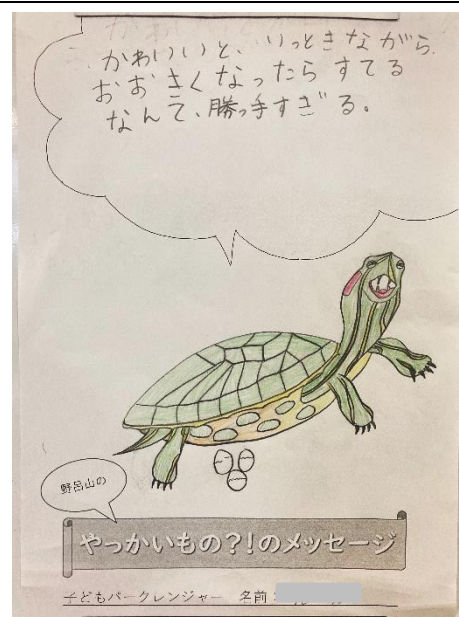 かわいいと、いっときながら
おおきくなったらすてる
なんて、勝っ手すぎる。
野呂山の
やっかいもの?!のメッセージ
子どもパークレンジャー 名前: